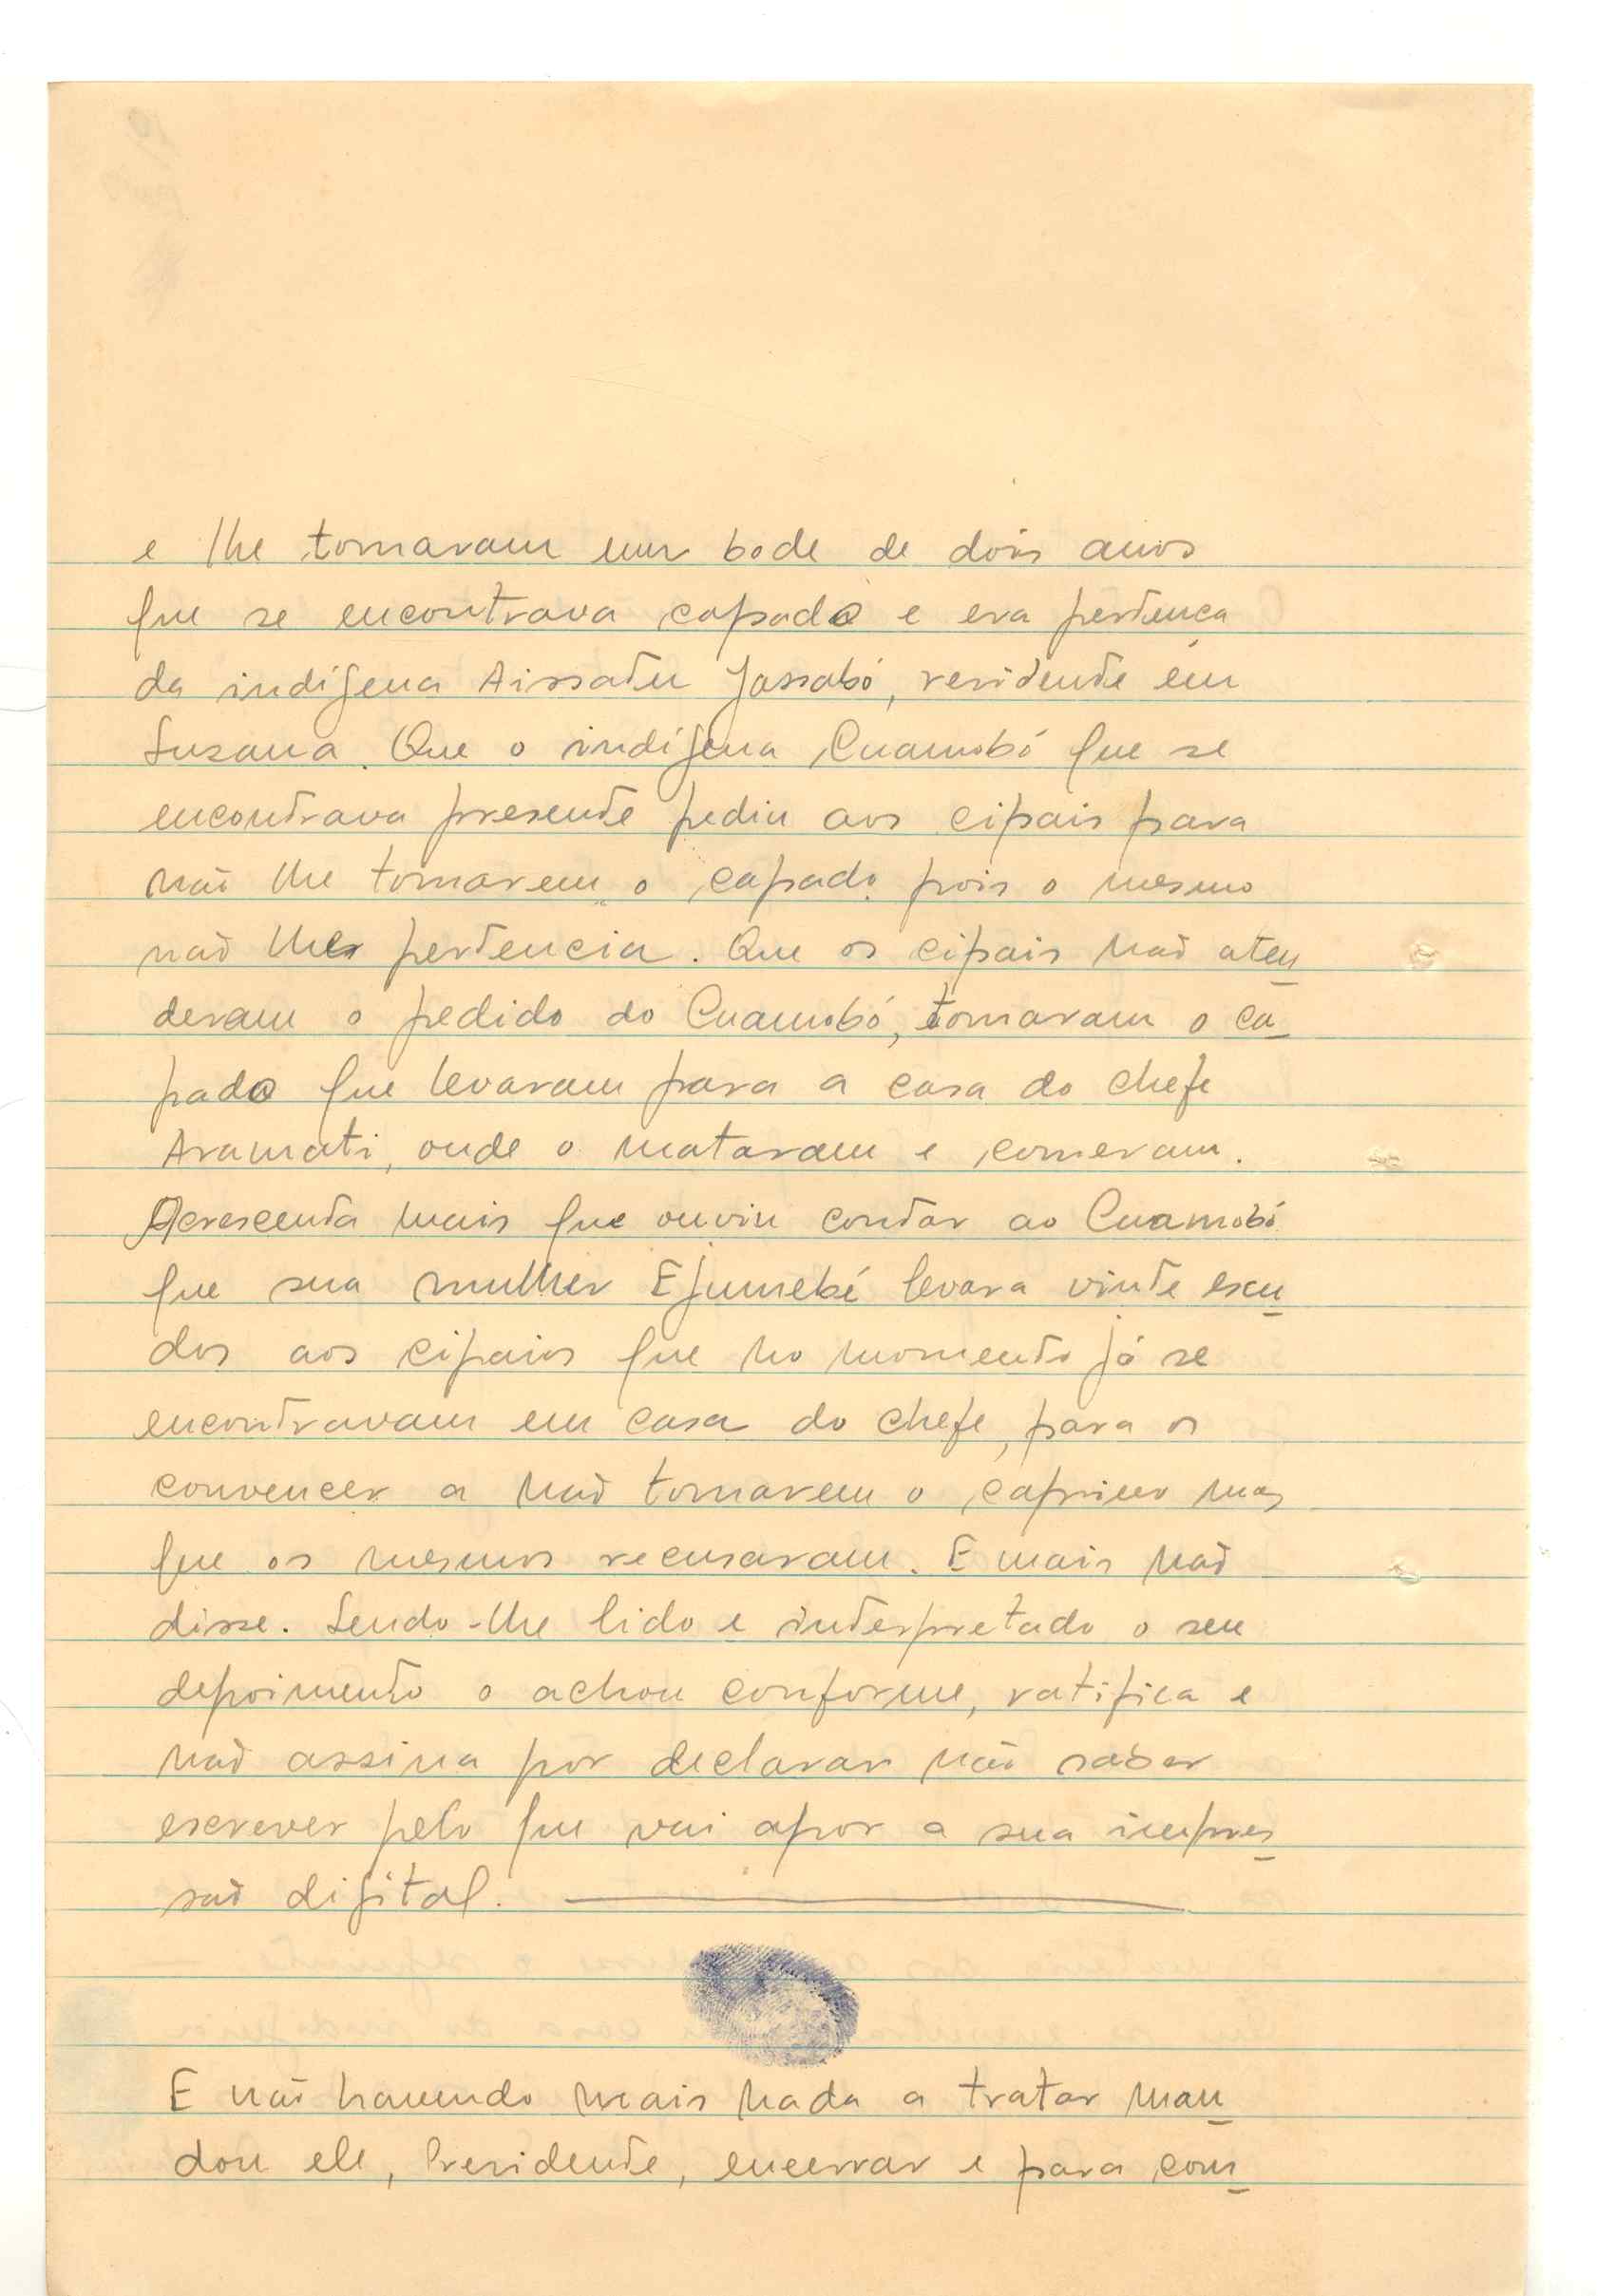 e lhe tomaram um bode de dois anos
que se encontrava capado e era pertença
da indígena Aissatu Jassabó, residente em
Suzana. Que o indígena Cuamobó que se
encontrava presente pediu aos cipais para
não lhe tomarem o capado pois o mesmo
não lhe pertencia. Que os cipais não aten
deram o pedido do Cuamobó, tomaram o ca
pado que levaram para a casa do chefe
Aramati, onde o mataram e comeram.
Acrescenta mais que ouviu contar ao Cuamobó
que sua mulher Ejumebé levara vinte escu
dos aos cipaios que no momento já se
encontravam em casa do chefe, para os
convencer a não tomarem o caprino mas
que os mesmos recusaram. E mais não
disse. Sendo-lhe lido e interpretado o seu
depoimento o achou conforme, ratifica e
não assina por declarar não saber
escrever pelo que vai apor a sua impres
são digital.
E não havendo mais nada a tratar man
dou ele, Presidente, encerrar e para com